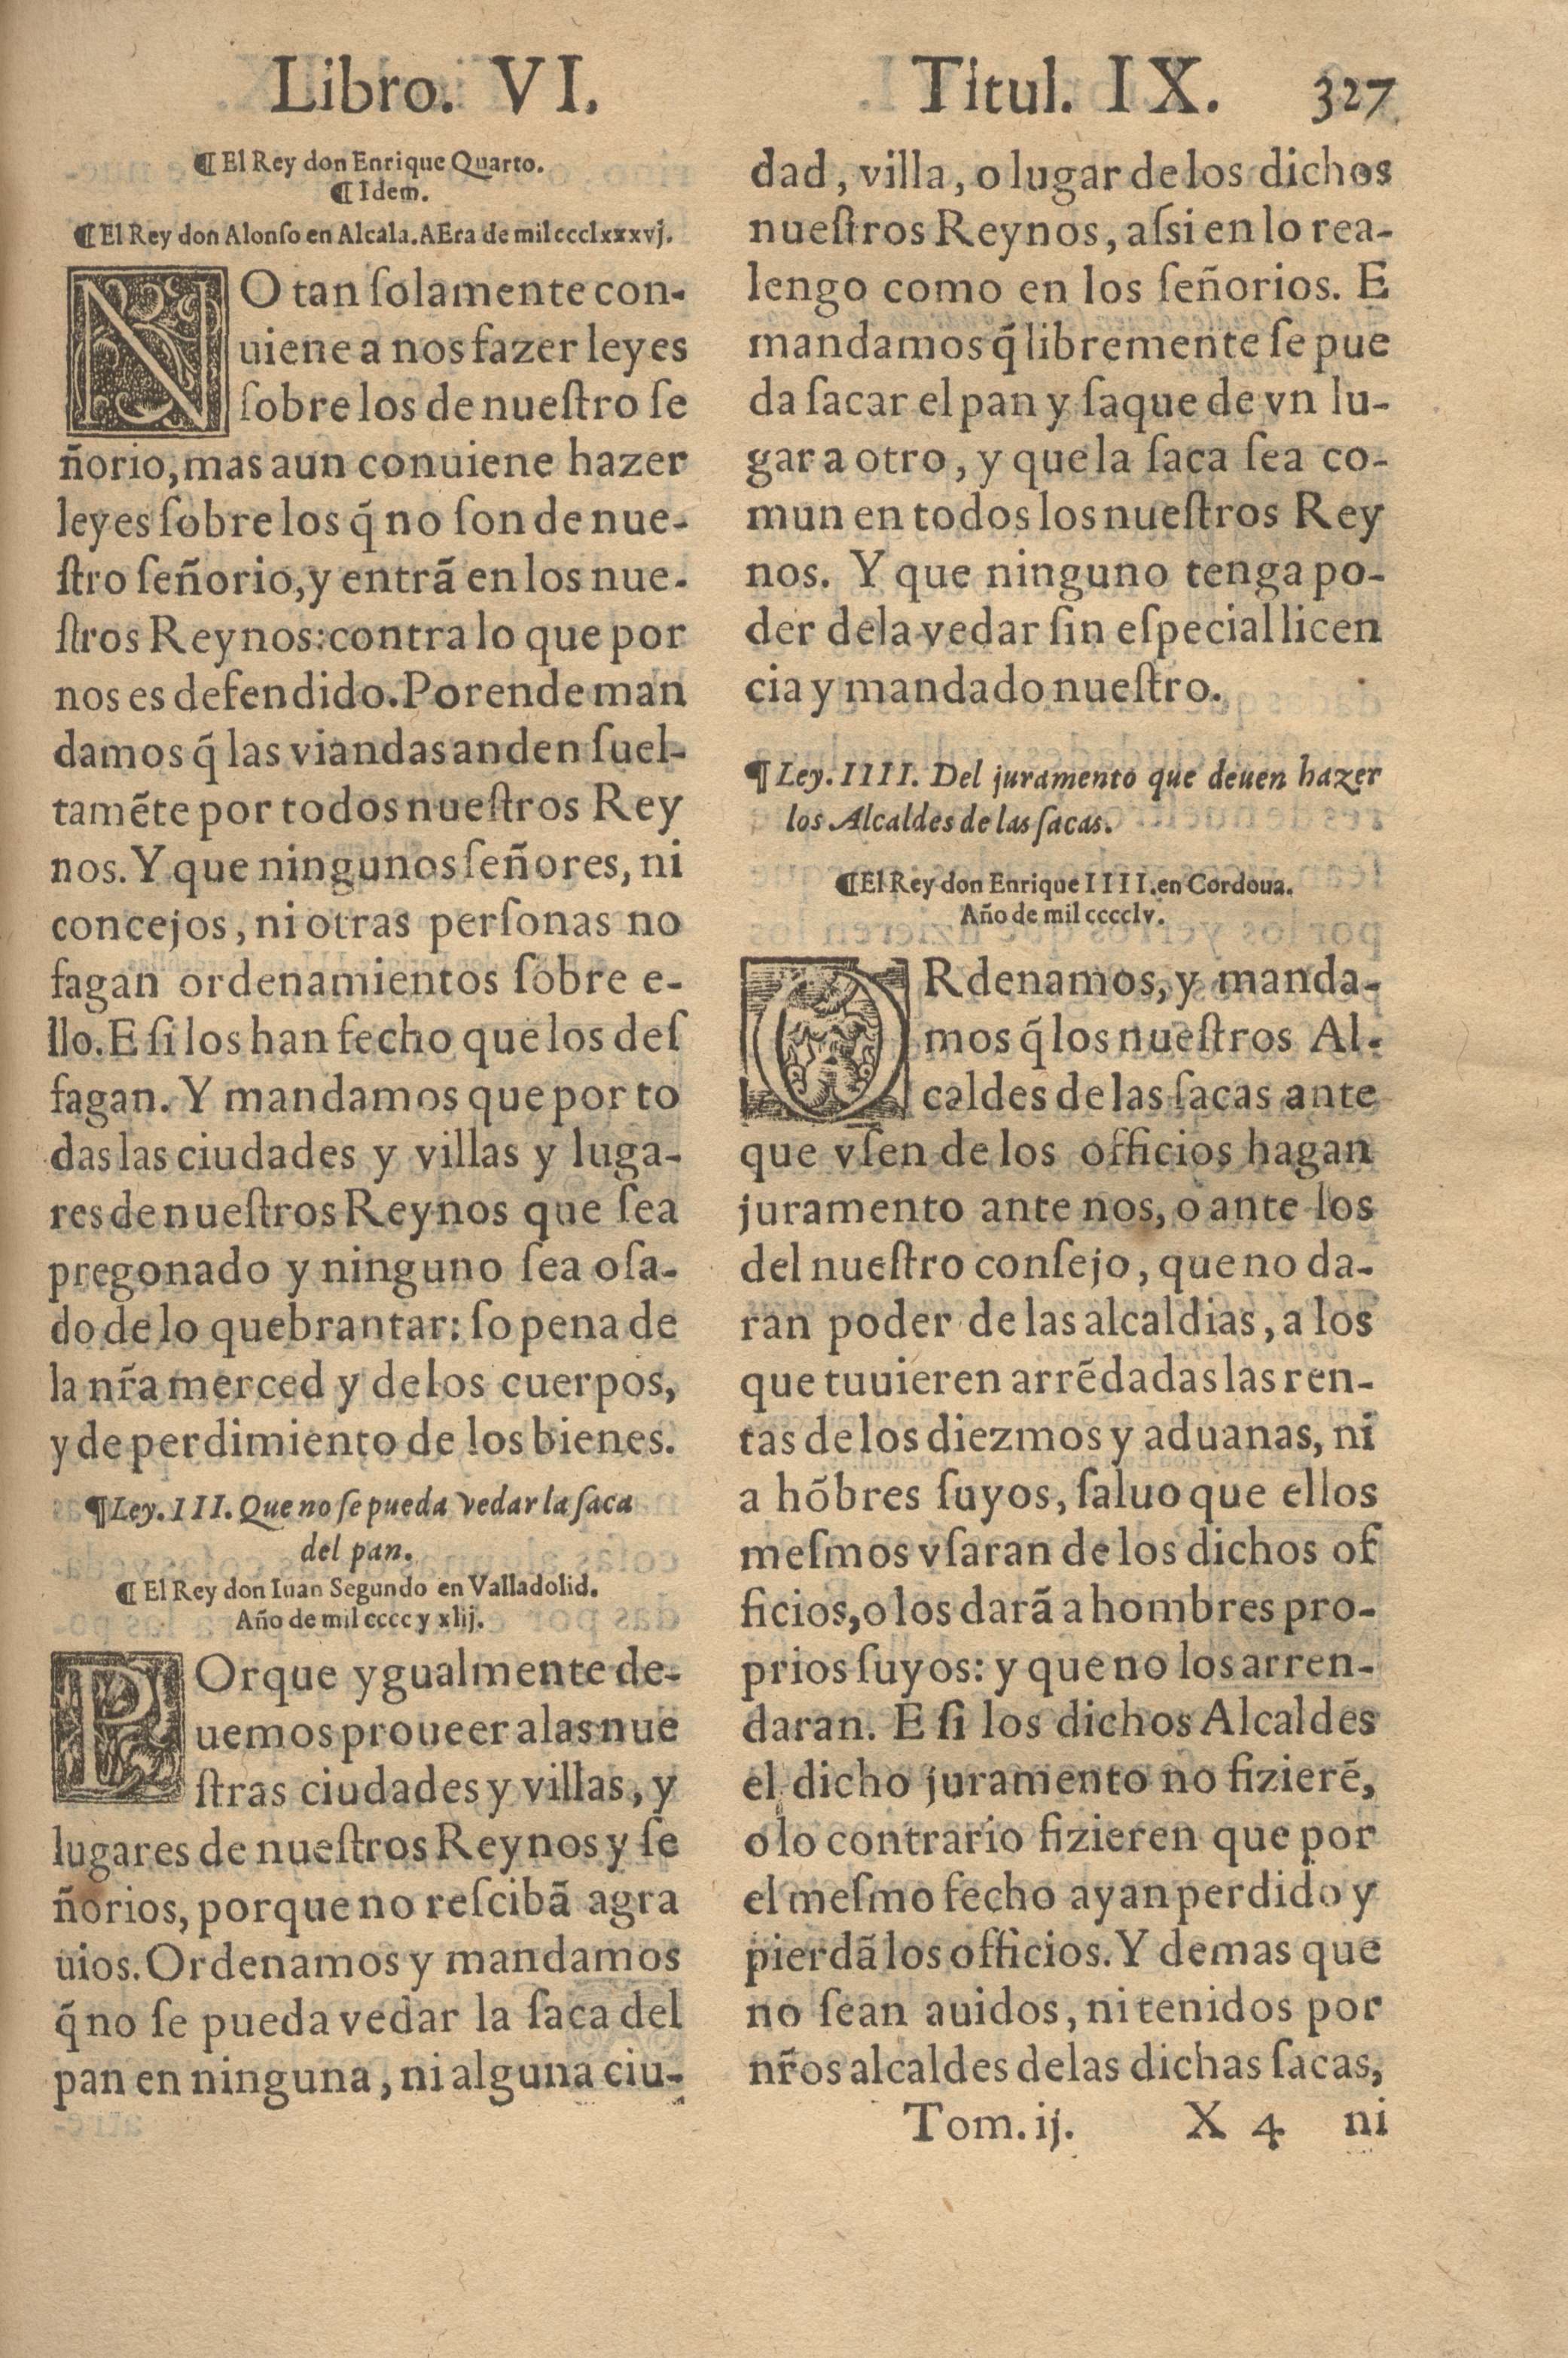 Libro. VI. Titul. IX. 327
¶ El Rey don Enrique Quarto.
¶ Idem.
¶ El Rey don Alonſo en Alcala. AEra de mil ccclxxxvj.
NO tan ſolamente con-
uiene a nos fazer leyes
ſobre los de nueſtro ſe
ñorio, mas aun conuiene hazer
leyes ſobre los q̃ no ſon de nue-
ſtro ſeñorio, y entrã en los nue-
ſtros Reynos: contra lo que por
nos es defendido. Porende man
damos q̃ las viandas anden ſuel-
tamẽte por todos nueſtros Rey
nos. Y que ningunos ſeñores, ni
concejos, ni otras perſonas no
fagan ordenamientos ſobre e-
llo. E ſi los han fecho que los deſ
fagan. Y mandamos que por to
das las ciudades y villas y luga-
res de nueſtros Reynos que ſea
pregonado y ninguno ſea oſa-
do de lo quebrantar: ſo pena de
la nr̃a merced y delos cuerpos,
y de perdimiento de los bienes.
¶ Ley. III. Que no ſe pueda vedar la ſaca
del pan.
¶ El Rey don Iuan Segundo en Valladolid.
Año de mil cccc y xlij.
POrque ygualmente de-
uemos proueer a las nue
ſtras ciudades y villas, y
lugares de nueſtros Reynos y ſe
ñorios, porque no reſcibã agra
uios. Ordenamos y mandamos
q̃ no ſe pueda vedar la ſaca del
pan en ninguna, ni alguna ciu-
dad, villa, o lugar de los dichos
nueſtros Reynos, aſsi en lo rea-
lengo como en los ſeñorios. E
mandamos q̃ libremente ſe pue
da ſacar el pan y ſaque de vn lu-
gar a otro, y que la ſaca ſea co-
mun en todos los nueſtros Rey
nos. Y que ninguno tenga po-
der dela vedar ſin eſpecial licen
cia y mandado nueſtro.
¶ Ley. IIII. Del juramento que deuen hazer
los Alcaldes de las ſacas.
¶ El Rey don Enrique IIII. en Cordoua.
Año de mil cccclv.
ORdenamos, y manda-
mos q̃ los nueſtros Al-
caldes de las ſacas ante
que vſen de los officios hagan
juramento ante nos, o ante los
del nueſtro conſejo, que no da-
ran poder de las alcaldias, a los
que tuuieren arrẽdadas las ren-
tas de los diezmos y aduanas, ni
a hõbres ſuyos, ſaluo que ellos
meſmos vſaran de los dichos of
ficios, o los darã a hombres pro-
prios ſuyos: y que no los arren-
daran. E ſi los dichos Alcaldes
el dicho juramento no fizierẽ,
o lo contrario fizieren que por
el meſmo fecho ayan perdido y
pierdã los officios. Y demas que
no ſean auidos, ni tenidos por
nr̃os alcaldes delas dichas ſacas,
Tom. ij. X 4 ni